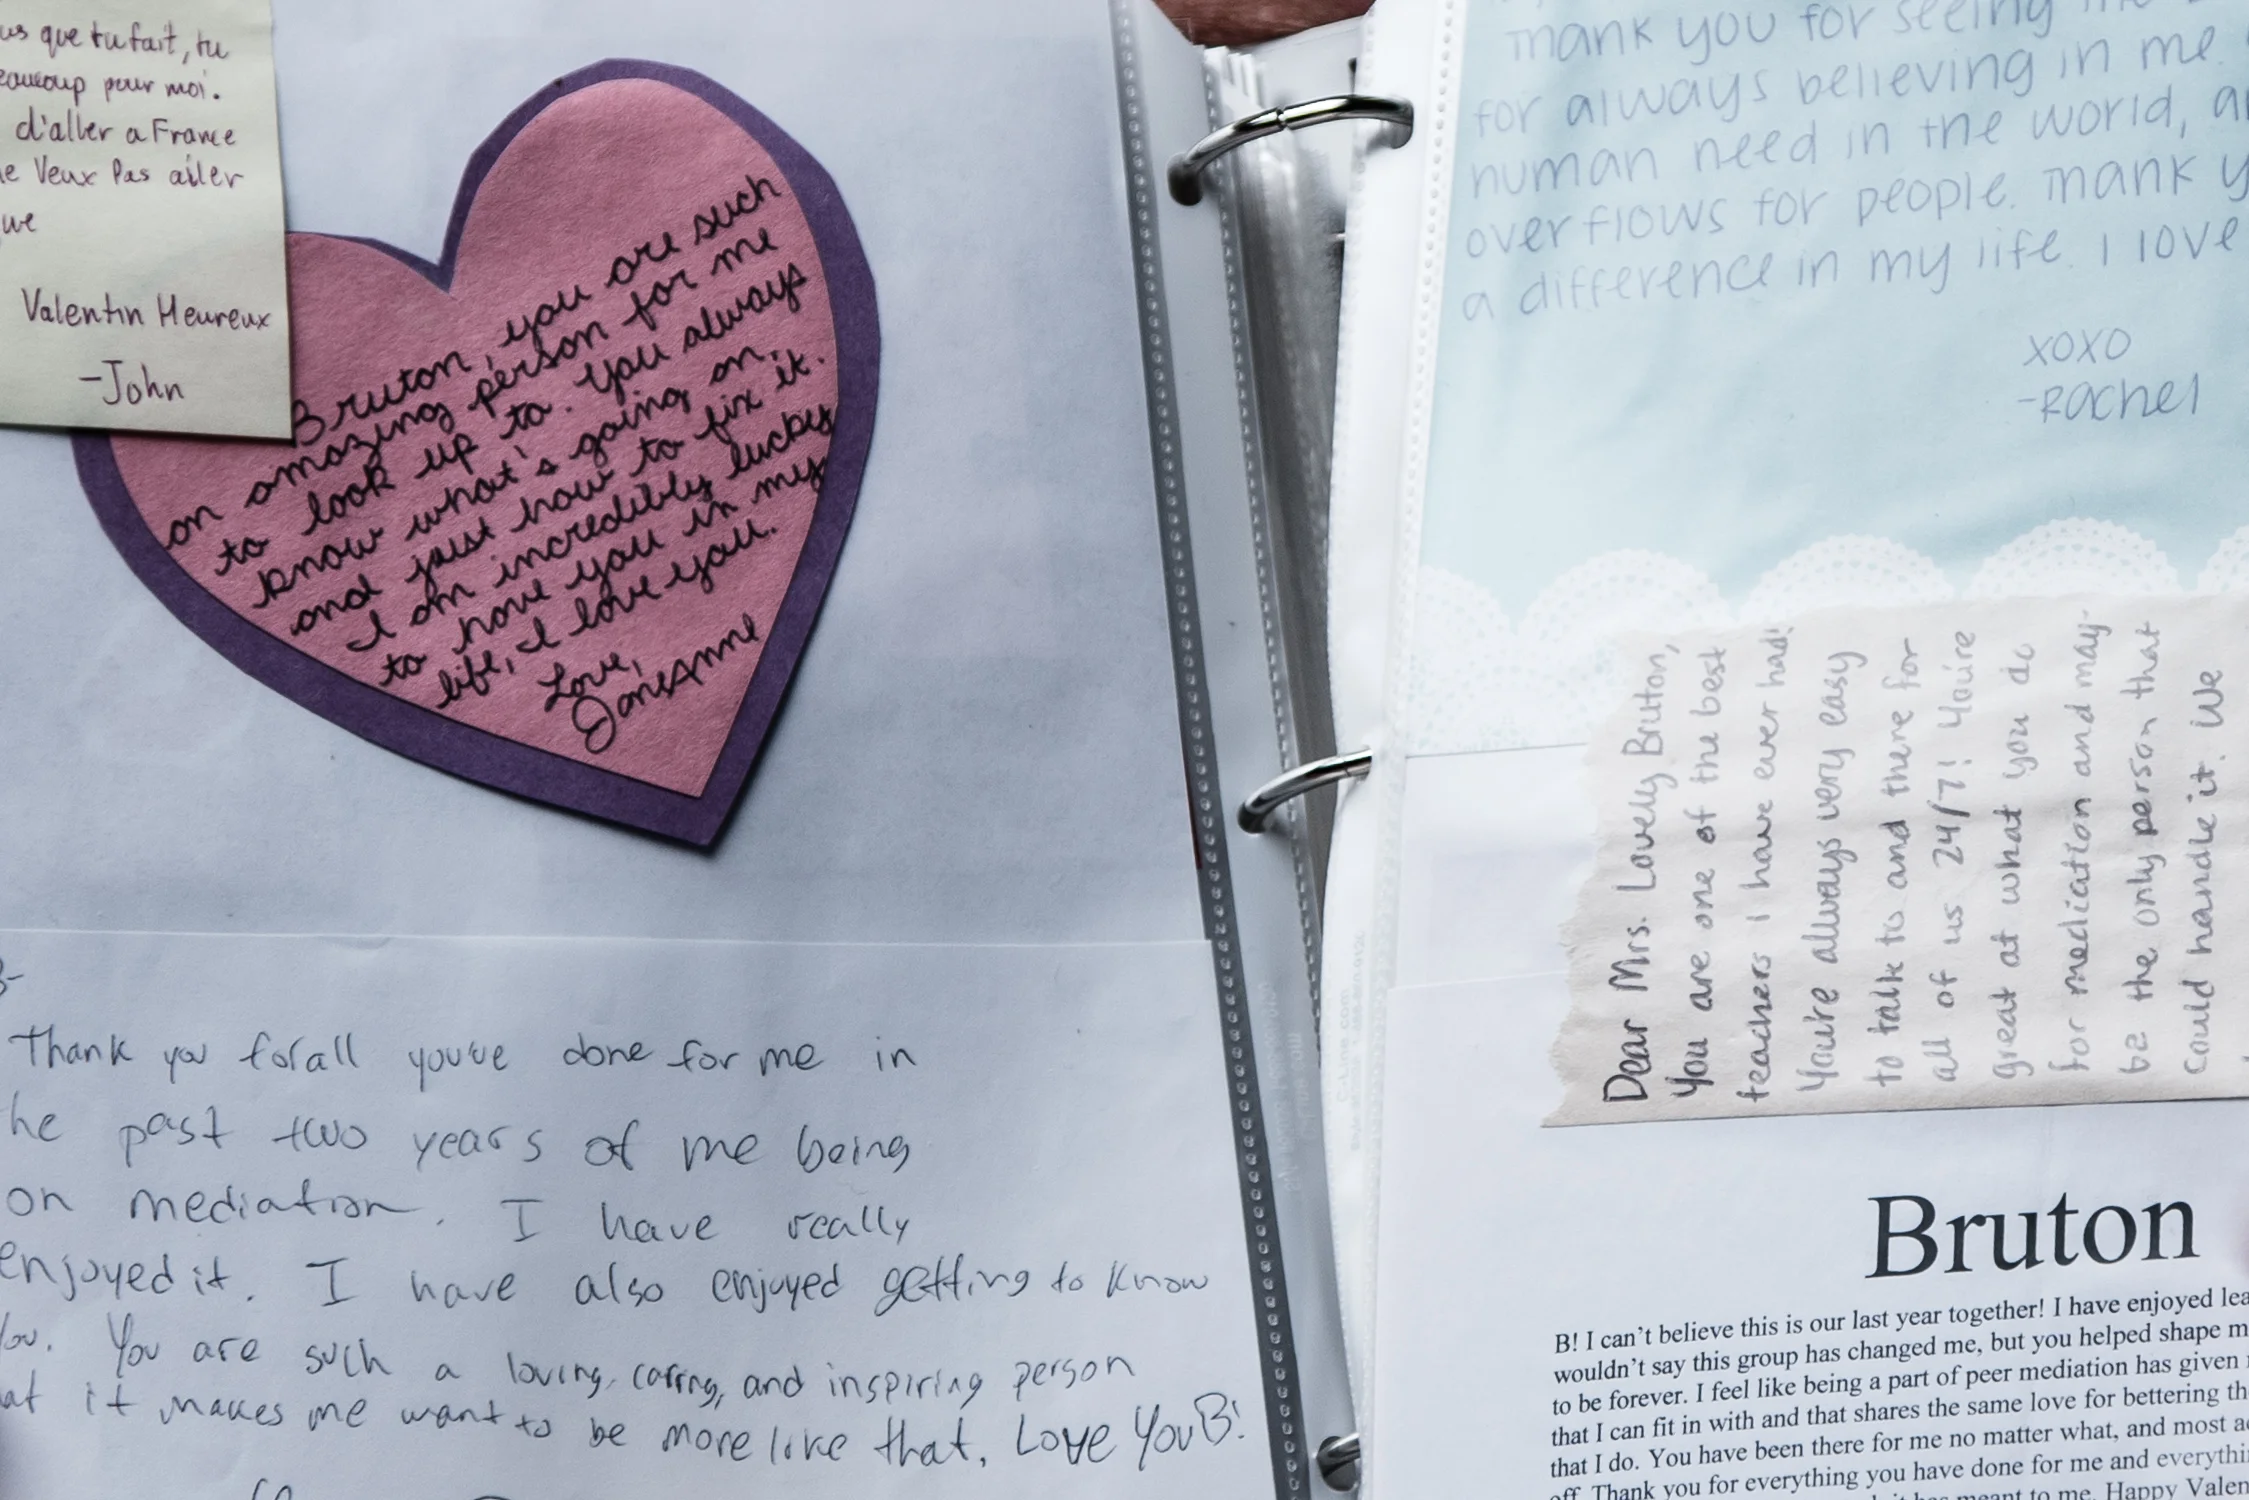 que tu fait, tu
pour moi.
d'aller a France
Veux Pas aller
Valentin Heureux
-John
Bruton, you are such
an amazing person for me
to look up to. You always
know what's going on,
and just how to fix it.
I am incredibly lucky
to have you in my
life, I love you.
Love,
JaneAnne
Thank you for all youve done for me in
he past two years of me being
on mediation. I have really
enjoyed it. I have also enjoyed getting to know
You are such a loving, caring, and inspiring person
at it makes me want to be more like that. Love You B!
Thank you for seeing
for always believing in me.
human need in the world,
overflows for people. Thank
a difference in my life. I love
xoxo
-Rachel
Dear Mrs. Lovely Bruton,
You are one of the best
teachers I have ever had!
You're always very easy
to talk to and there for
all of us 24/7! You're
great at what you do
for mediation and may-
be the only person that
could handle it. We
Bruton
B! I can't believe this is our last year together! I have enjoyed lea
wouldn't say this group has changed me, but you helped shape m
to be forever. I feel like being a part of peer mediation has given
that I can fit in with and that shares the same love for bettering th
that I do. You have been there for me no matter what, and most a
off. Thank you for everything you have done for me and everythi
meant to me. Happy Valen